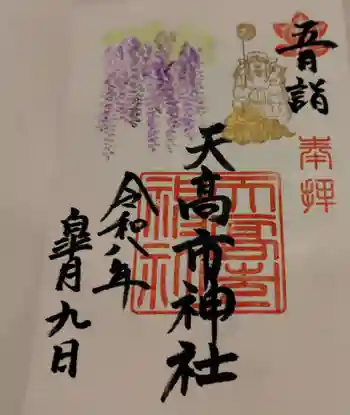 吾月詣
奉拝
天高市神社
天高市神社
令和八年
皐月九日